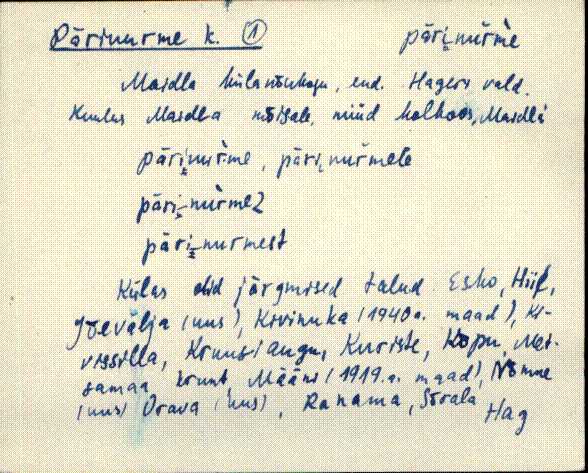 Pärinurme k. (1) päri̮nùrme
Maidla külanõukogu, end. Hageri vald.
Kuulus Maidla mõisale, nüüd kolhoos, Maidla
päri̮nùrme, päri̮nurmele
päri̮nùrmez
päri̮nurmest
Külas olid järgmised talud Esko, Hiif,
Jõevälja (uus), Kivinuka (1940 a. maad), Ki-
vissilla, Kruusiaugu, Kuriste, Kopu, Mei-
samaa krunt, Määni (1919. a. maad), Nõmme
(uus) Orava (uus), Ranama, Sõrala
Hag